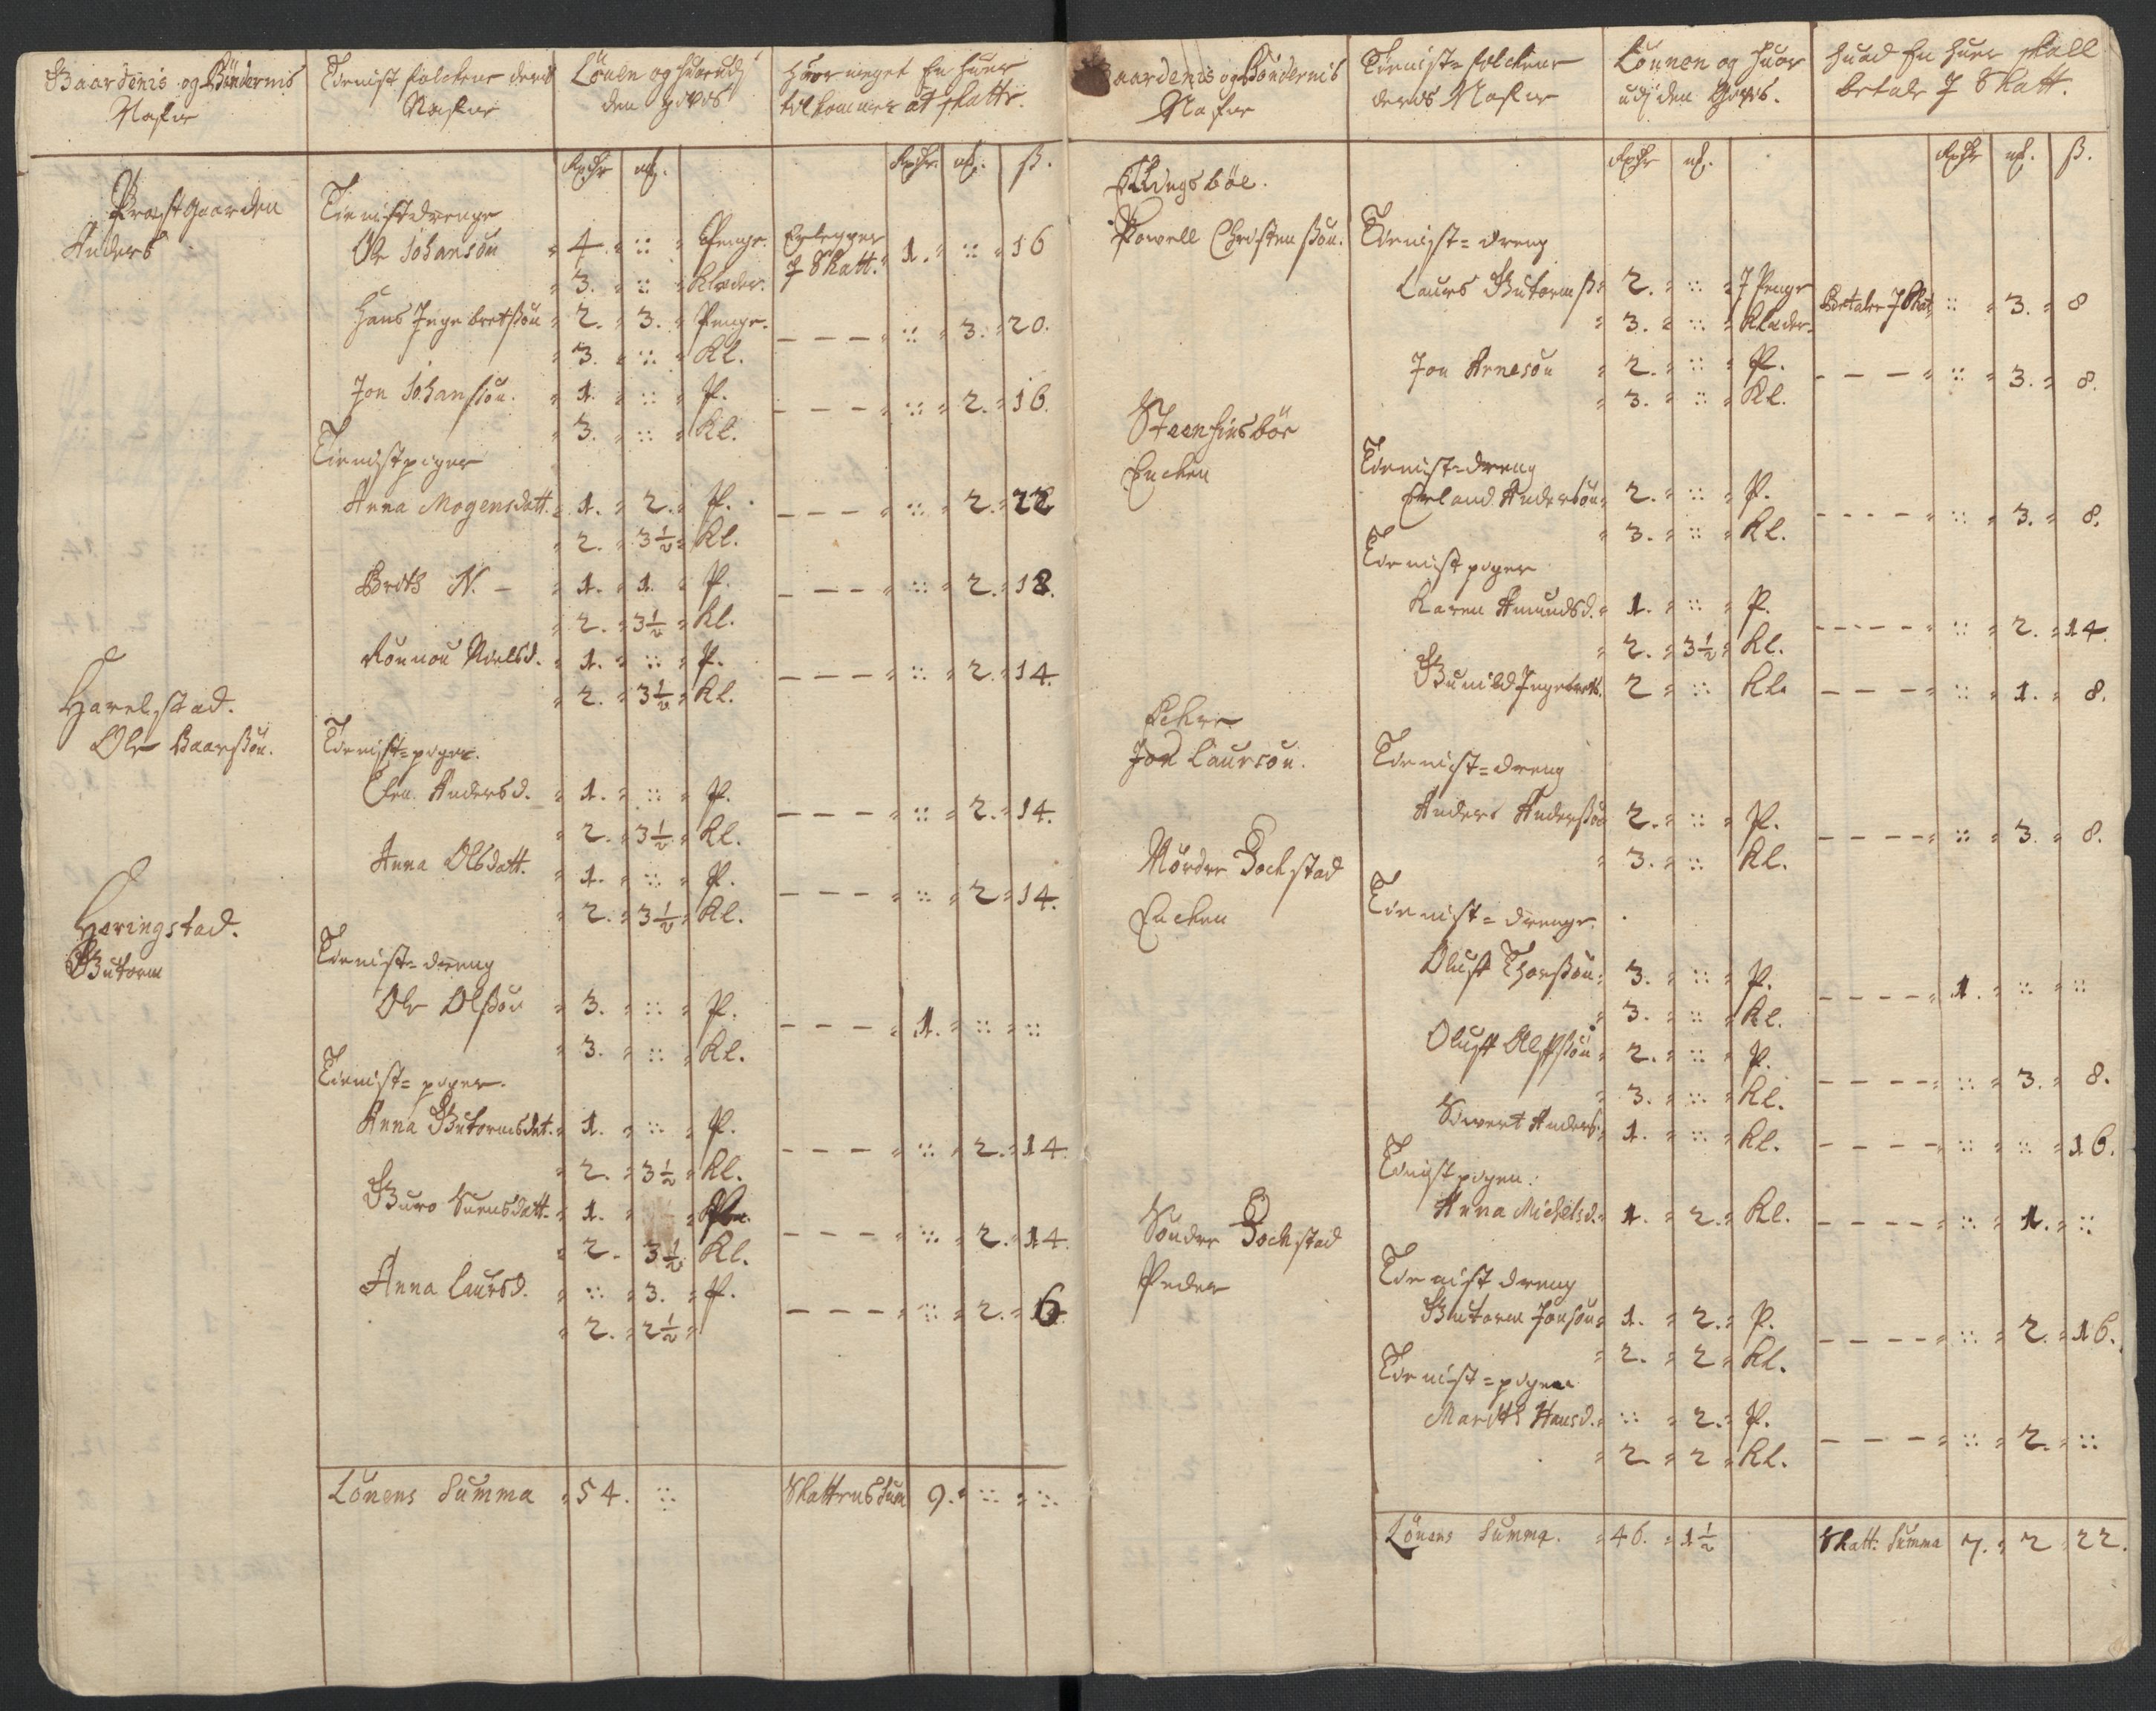 Gaardenis og Bøndernis Nafne
Tienist folckene deris Nafne
Lönen og huorudj den gives
Huor meget En huer tilkommer at skatte.
Rdr mk.
Rdr mk. ß.
Præstgaarden
Anders
Tienistdrenge
Ole Johansön 4. :: Penge. Erlegger J Skatt. 1. :: 16
3. :: Klæder.
Hans Jngebretssön 2. 3. Penge. – – – :: 3. 20.
3. :: Kl.
Jon Johanssön. 1. :: P. – – – :: 2. 16.
3. :: Kl.
Tienistpiger
Anna Mogensdatt. 1. 2. P. – – – :: 2. 22
2. 3½ Kl.
Brith N. – 1. 1. P. – – – :: 2. 18.
2. 3½ Kl.
Rönnou Nielsd. 1. :: P. – – – :: 2. 14.
2. 3½ Kl.
Harelstad.
Ole Baarssön.
Tienist=piger.
Elen Andersd. 1. :: P. – – – :: 2. 14.
2. 3½ Kl.
Anna Olsdatt. 1. :: P. – – – :: 2 14.
2. 3½ Kl.
Heringstad.
Gutorm
Tienist=dreng
Ole Olssön 3. :: P. – – – 1. :: ::
3. :: Kl.
Tienist=piger.
Anna Gutormsdat. 1. :: P. – – – :: 2. 14.
2. 3½ Kl.
Guro Suensdatt. 1. – – – :: 2. 14.
2. 3½ Kl.
Anna Laursd. :: 3. P. – – – :: 2. 6
2. 2½
Lönens Summa 54. :: Skattens Sum 9. :: ::
Gaardenis og Böndernis Nafne
Tienist=folckene deris Nafne
Lönnen og huor udj den Gives.
Huad En huer skall betale J Skatt.
Rdr mk.
Rdr mk. ß.
Powell Christenssön.
Tienist=dreng
Laurs Gutormß 2. :: J Penge Betaler J Skat :: 3. 8
3. :: Klæder.
Jon Arnesön 2. :: P. – – – :: 3. 8.
3. :: Kl.
Steenfinsböe
Encken
Tienist=dreng
Erland Andersön 2. :: P. – – – – :: 3. 8.
3. :: Kl.
Tienist piger
Karen Amundsd. 1. :: P. – – – – :: 2. 14.
2. 3½ Kl.
Gunild Jngebrets. 2 :: Kl. – – – :: 1. 8.
Echre
Jon Laursön.
Tienist=dreng
Anders Anderssön 2. :: P. – – – – :: 3. 8.
3. :: Kl.
Nördre Bochstad
Encken
Tienist=drenge.
Oluff Thorssön 3. :: P. – – – – 1. :: ::
3. :: Kl.
Oluff Olssön 2. :: P. – – – – :: 3. 8.
3. :: Kl.
Siwert Anders. 1. :: Kl. – – – – :: :: 16.
Tienistpigen.
Anna Michelsd. 1. 2. Kl. – – – – :: 1. ::
Sönder Bochstad
Peder
Tienist dreng
Gutorm Jonsön 1. 2. P. – – – – :: 2. 16.
2. 2 Kl.
Tienist=pigen
Marith Hansd. :: 2. P. – – – :: 2. ::
2. 2 Kl.
Lönens Summa. 46. 1½ Skatt. Summa 7. 2 22.